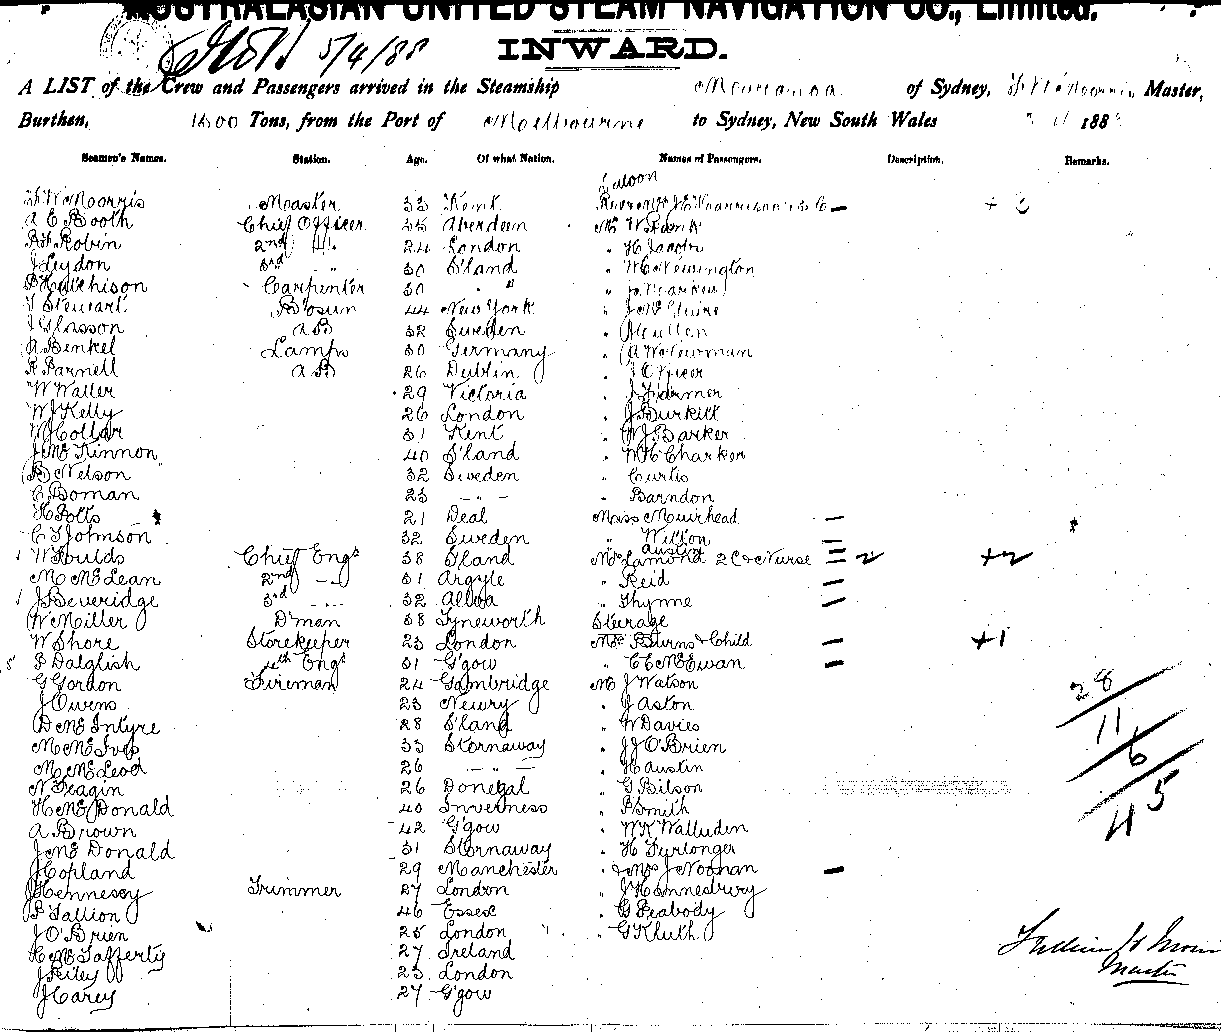 AUSTRALASIAN UNITED STEAM NAVIGATION CO., Limited.
5/4/88
INWARD.
A LIST of the Crew and Passengers arrived in the Steamship of Sydney, Master,
Burthen, 1500 Tons, from the Port of Melbourne to Sydney, New South Wales 188
Seamen's Names. Station. Age. Of what Nation. Names of Passengers. Description. Remarks.
Saloon
Master 33 Kent + 3
A E Booth Chief Officer 35 Aberdeen Mr W
Robin 2nd 24 London H Jacobs
J Leydon 3rd " 30 S'land Newington
P Hutchison Carpenter 30 "
Stewart B'osun 44 New York
J Glasson AB 32 Sweden Cullen
A Benkel Lamps 30 Germany A W Newman
R Parnell AB 26 Dublin J Officer
W Waller 29 Victoria J Farmer
W J Kelly 26 London J Burkitt
W J Collar 31 Kent W J Barker
J McKinnon 40 S'land W H Charker
B Nelson 32 Sweden Curtis
C Boman 23 - " - Barndon
H Potts 21 Deal Miss Muirhead
C J Johnson 32 Sweden " Wilton
Austin
W Foulds Chief Engr 38 S'land Mrs Lamond 2 C & Nurse 2 +2
M McLean 2nd 31 Argyle " Reid
J Beveridge 3rd 32 Alloa " Thynne
W Miller D'man 38 Tyneworth Steerage
W Shore Storekeeper 23 London Mrs Burns & Child +1
P Dalglish 4th Engr 31 G'gow " C E McEwan
G Gordon Fireman 24 Cambridge Mr J Watson
J Owens 23 Newry J Aston
D McIntyre 28 S'land W Davies
M McIver 33 Stornaway J J O'Brien
M McLeod 26 - " - H Austin
N Feagin 26 Donegal G Bilson
H McDonald 40 Inverness P Smith
A Brown 42 G'gow W K Walluden
J McDonald 31 Stornaway H Furlonger
J Copland 29 Manchester & Mrs J Noonan
J Hennesey Trimmer 27 London J Hannesbury
P Tallion 46 Essex G Peabody
J O'Brien 25 London G Kluth
H McLafferty 27 Ireland
J Riley 23 London
J Carey 27 G'gow
28
11
6
45
Master